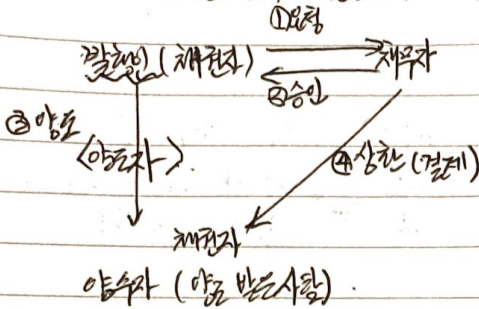 ①요청
발행인 (채권자) 채무자
②승인
③양도
<양도자>
④상환 (결제)
채권자
양수자 (양도 받은사람).